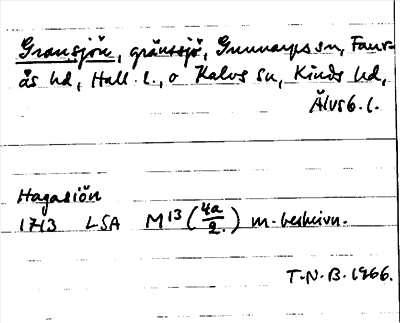 Gransjön, gränssjö, Gunnarps sn, Faur-
ås hd, Hall. l., o Kalvs sn, Kinds hd,
Älvsb. l.
Hagasiön
1713 LSA M13 (4a/2) m. beskrivn.
T.N.B. 1966.